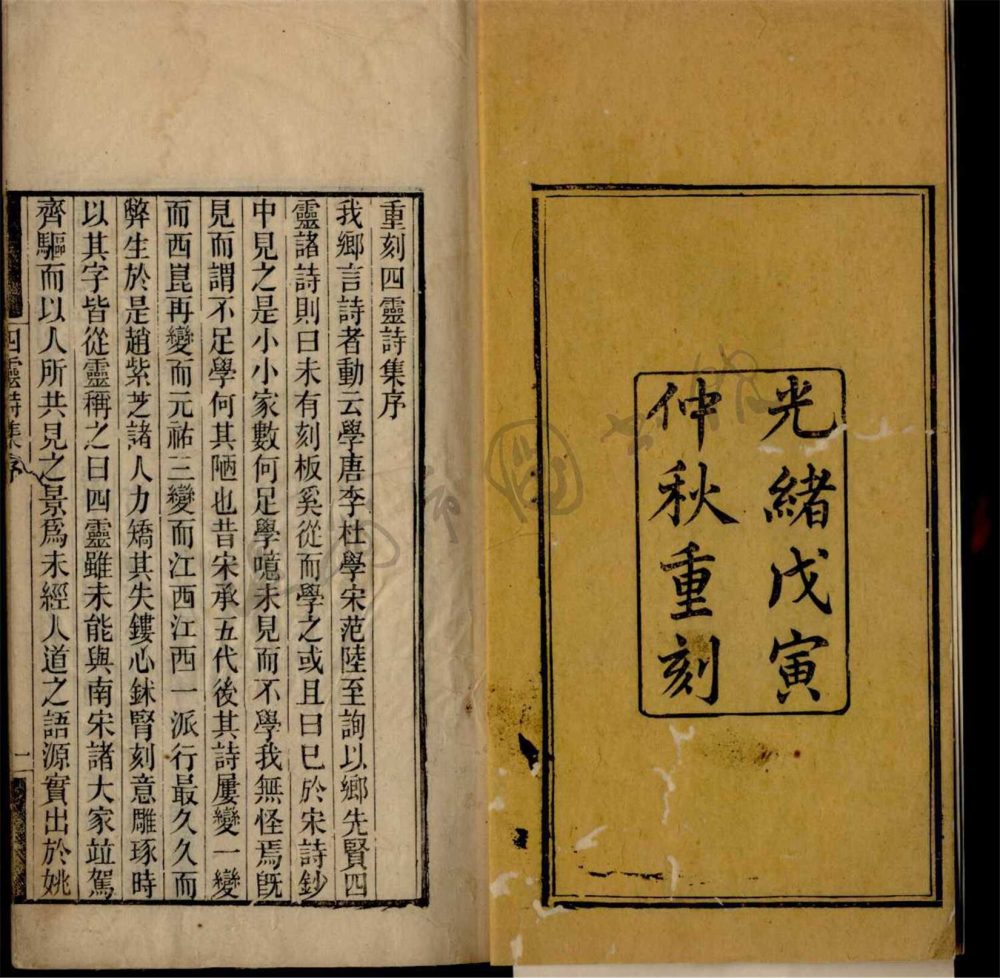 光緒戊寅
仲秋重刻
重刻四靈詩集序
我鄉言詩者動云學唐李杜學宋范陸至詢以鄉先賢四
靈諸詩則曰未有刻板奚從而學之或且曰已於宋詩鈔
中見之是小小家數何足學噫未見而不學我無怪焉旣
見而謂不足學何其陋也昔宋承五代後其詩屢變一變
而西崑再變而元祐三變而江西江西一派行最久久而
弊生於是趙紫芝諸人力矯其失鏤心鉥腎刻意雕琢時
以其字皆從靈稱之曰四靈雖未能與南宋諸大家竝駕
齊驅而以人所共見之景爲未經人道之語源實出於姚
四靈詩集序
一